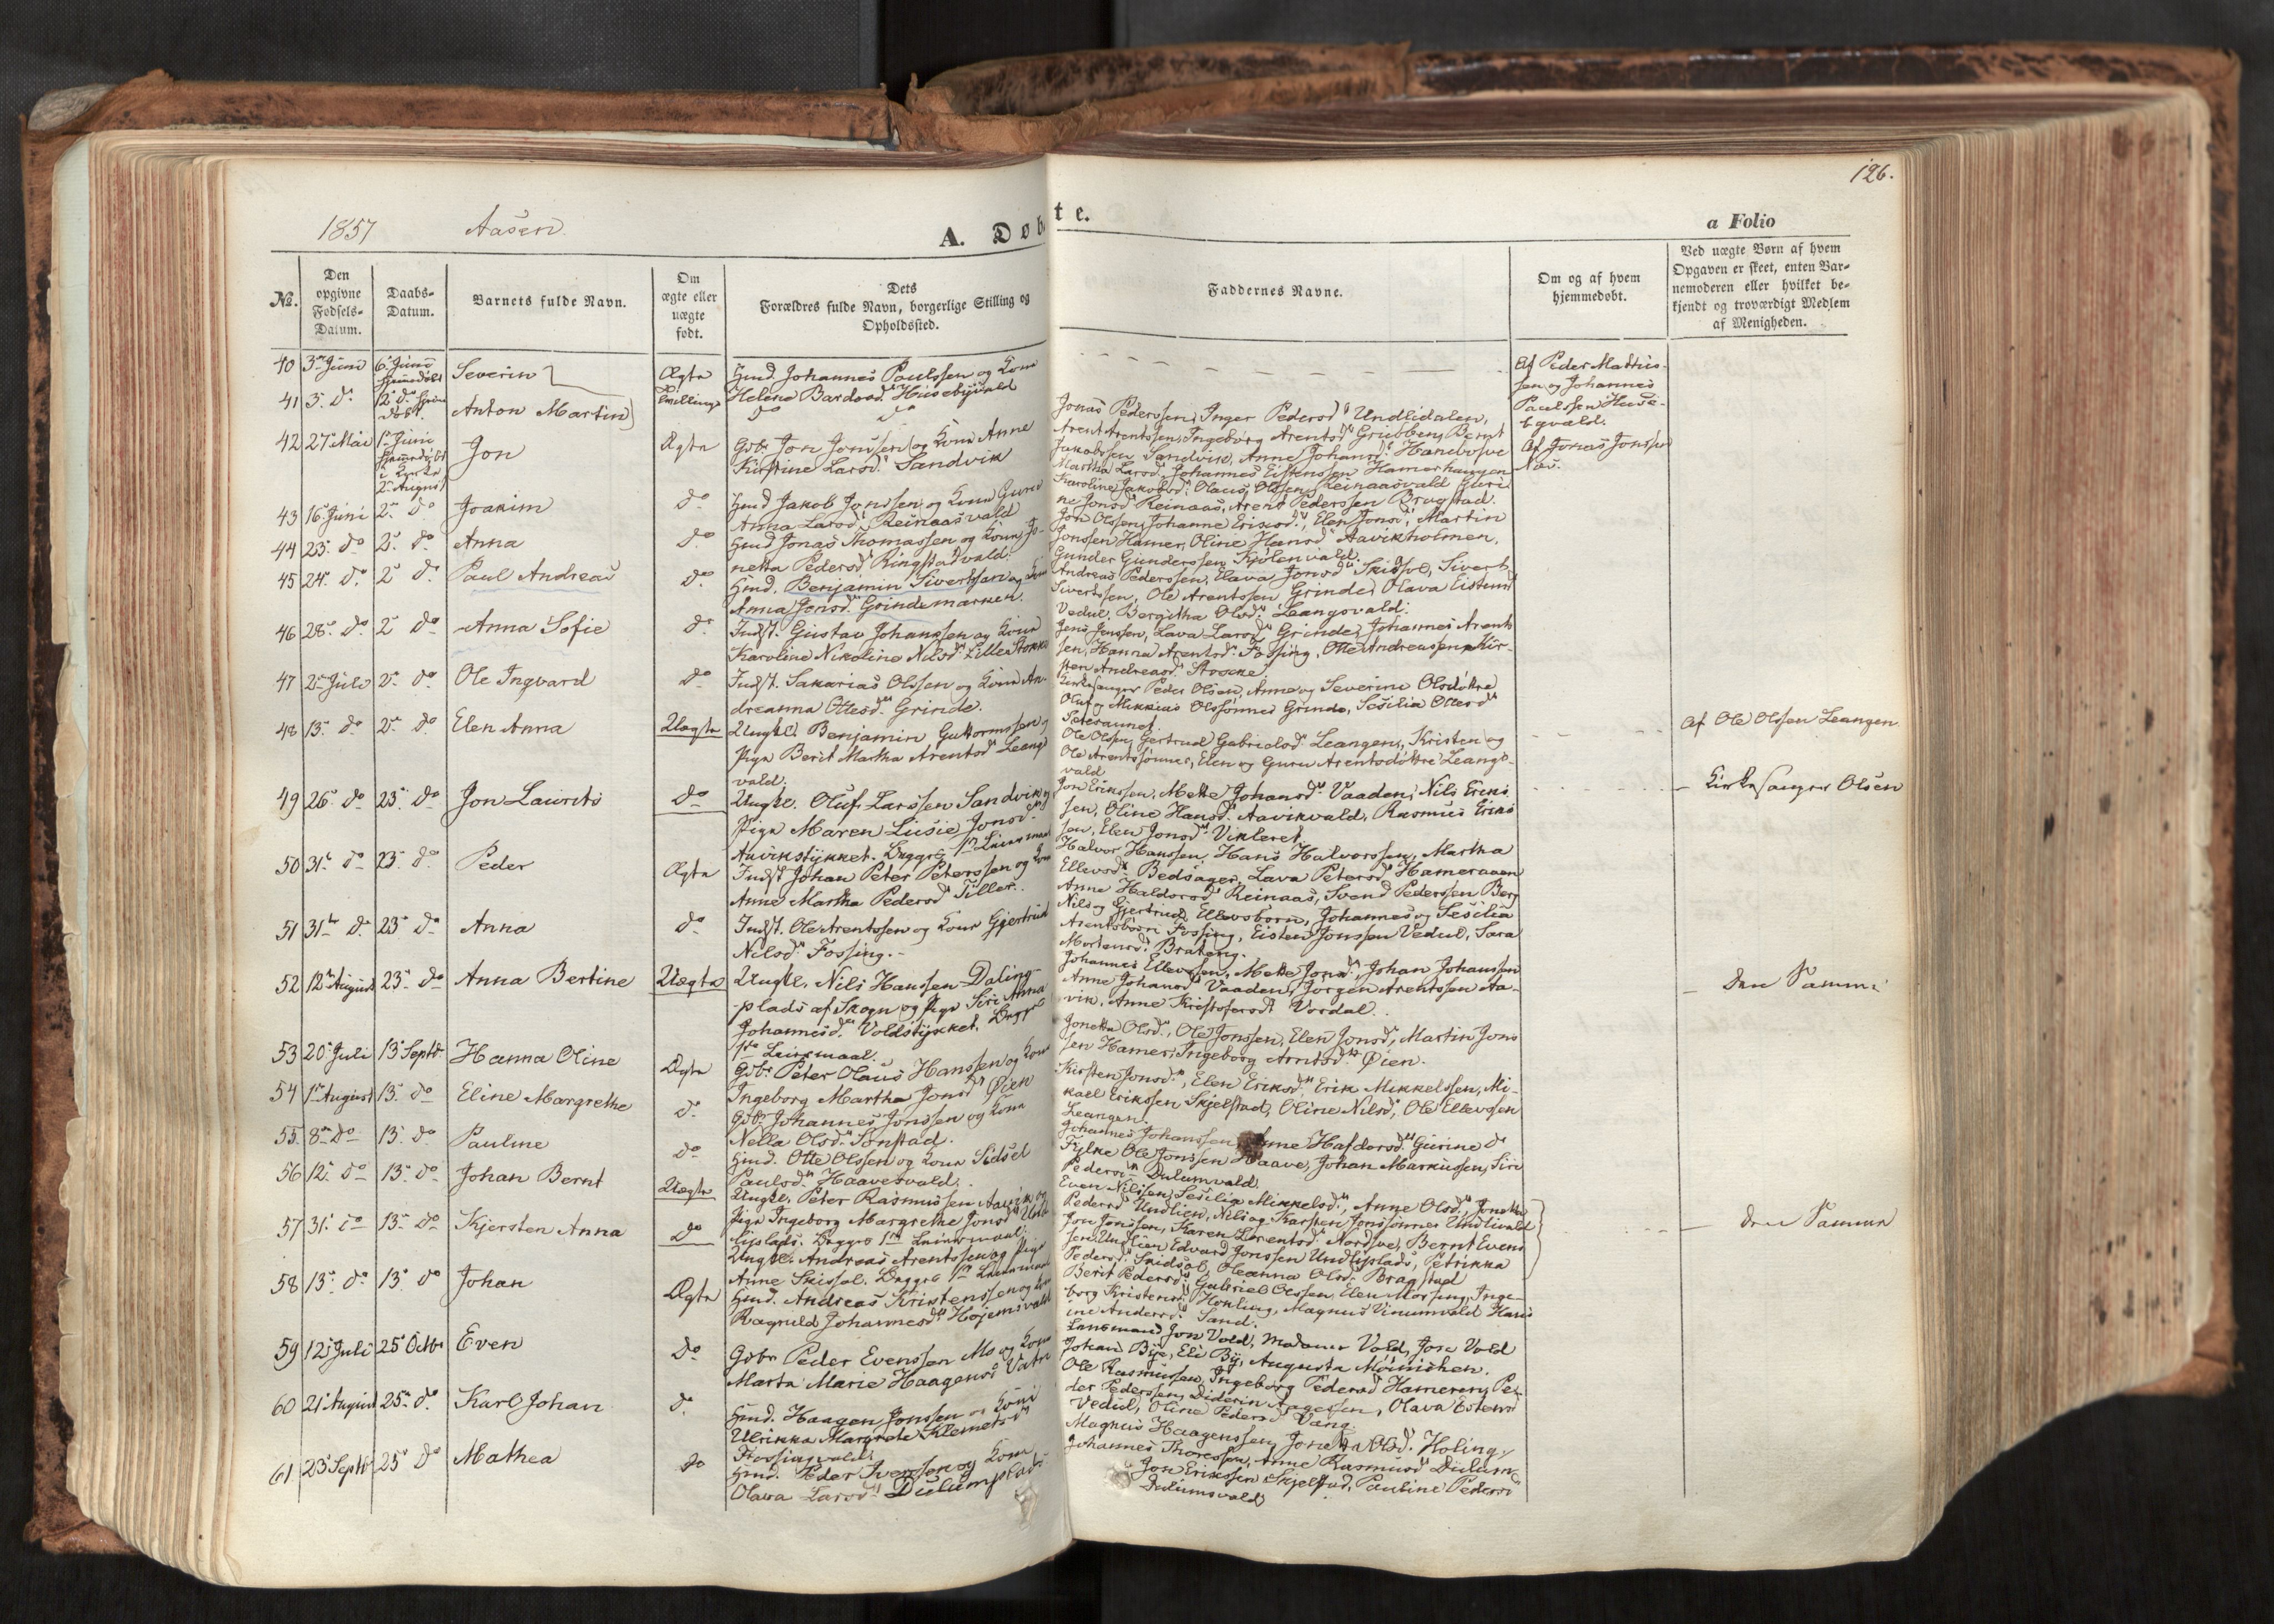 126.
1857 Aasen
A. Døbte.
a Folio
No.
Den opgivne Fødsels-Datum.
Daabs-Datum.
Barnets fulde Navn.
Om ægte eller uægte født.
Dets Forældres fulde Navn, borgerlige Stilling og Opholdssted.
Faddernes Navne.
Om og af hvem hjemmedøbt.
Ved uægte Børn af hvem Opgaven er skeet, enten Barnemoderen eller hvilket bekjendt og troværdigt Medlem af Menigheden.
40 3die Juni 6te Juni hjemmedøbt Severin Ægte Tvillinger
Hmd. Johannes Paulssen og Kone
Helene Bardosd. Husebyvald
Af Peder Mathis-
sen og Johannes
Paulssen Huse-
byvald.
41 3. do 12. do hjem døbt. Anton Martin do do
42 27de Mai 1ste Juni hjemmedøbt i Kyrke 2den August Jon Ægte
Gbr. Jon Jonssen og Kone Anne
Kirstine Larsd. Sandvik
Jonas Pederssen, Inger Pedersd. Undlidalen,
Arent Arentssen, Ingeborg Arentsd. Gribben, Bernt
Jakobssen Sandvik, Anne Johansd.
Af Jonas Jonssen
43 16. Juni 2. do Joakim do
Hmd Jakob Jonssen og Kone Guru
Anna Larsd. Reinaasvald
Martha Larsd. Johannes Eistenssen Hamerhaugen
Karoline Jakobsd. Olaus Olssen, Reinaasvald Guri-
ne Jonsd Reinaas, Arent Pederssen Bragstad.
44 23. do 2. do Anna do
Hmd Jonas Thomassen og Kone Jo-
netta Pedersd Ringstadvald.
Jon Olssen, Johanne Eriksd., Elen Jonsd., Martin
Jonssen Hamer, Oline Hansd Aavikholmen.
Gunder Gunderssen Kjølenvald.
45 24. do 2 do Paul Andreas do
Hmd. Benjamin Sivertssen og Kone
Anna Jonsd. Grindemarken.
Andreas Pederssen, Elava Jonsd. Skidsol, Sivert
Sivertssen, Ole Arentssen Grinde, Olava Eistensd
Vedul. Bergitha Olsd. Leangsvald.
46 28. do 2 do Anna Sofie do
Indst. Gustav Johanssen og Kone
Karoline Nikoline Nilsd. Lille Stokke
Jens Jenssen, Lava Larsd. Grinde, Johannes Arents
sen, Hanna Arentsd. Fossing. Otte Andreassen, Kir-
sten Andreasd. Stokke.
47 2. Juli 2. do Ole Ingvard do
Indst. Sakarias Olssen og Kone An-
dreanna Ottesd. Grinde.
Kirkesanger Peder Olsen, Anne og Severine Olsdøttre
Oluf og Mikkias Olssønner Grinde, Sesilia Ottersd
Seteraunet
48 13. do 2. do Elen Anna Uægte
Ungkl. Benjamin Guttormssen og
Pige Berit Martha Arentsd Leangs
vald.
Ole Olssen, Gjertrud Gabrielsd. Leangen, Kristen og
Ole Arentssønner, Elen og Guru Arentsdøttre Leangs-
vald
Af Ole Olssen Leangen
49 26. do 23. do Jon Laurits do
Ungkl. Oluf Larssen Sandvik og
Pige Maren Lusie Jonsd.
Aavikstykket. Begges 1ste Leiersmaal
Jon Erikssen, Mette Johansd. Vaaden, Nils Eriks
sen, Oline Hansd. Aavikvald, Rasmus Eriks
sen, Elen Jonsd. Vikleret
Kirkesanger Olsen
50 31. do 23. do Peder Ægte
Indst Johan Peter Peterssen og Kone
Anne Martha Pedersd Tiller.
Halvor Hanssen, Hans Halvorssen, Martha
Ellevsd. Bedsager, Lava Petersd. Hameraaen
Anne Haldorsd Reinaas, Svend Pederssen Berg
51 31te do 23 do Anna do
Indst. Ole Arentssen og Kone Gjertrud
Nilsd. Fossing.
Nils og Gjertrud Ellevsbørn, Johannes og Sesilia
Arentsbørn Fossing, Eisten Jonssen Vedul, Sara
Mortensd. Brateng.
52 12te August 23. do Anna Bertine Uægte
Ungkl. Nils Hanssen Daling-
plads af Skogn og Pige Siri Anna
Johannesd. Voldstykket. Begges
1ste Leiersmaal.
Johannes Ellevssen, Mette Jonsd., Johan Johanssen
Anne Johansd Vaaden, Jørgen Arentssen Aa-
vik, Anne Kristofersd. Vordal.
Den Samme
53 20. Juli 13. Septb. Hanna Oline Ægte
Gbr. Peter Olaus Hanssen og Kone
Ingeborg Martha Jonsd Øien
Jonetta Olsd., Ole Jonssen, Elen Jonsd., Martin Jons
sen Hamer, Ingeborg Arntsd. Øien.
54 1ste August 13. do Eline Margrethe do
Gbr. Johannes Jonssen og Kone
Nella Olsd. Sonstad.
Kirsten Jonsd., Elen Eriksd. Erik Mikkelssen, Mi-
kael Erikssen Skjelstad, Oline Nilsd., Ole Ellevssen
Leangen.
55. 8. do 13. do Pauline do
Hmd. Otte Olssen og Kone Sidsel
Paulsd. Haavesvald.
Johannes Johanssen, Anne Hafdorsd. Gurine do
Fylke Ole Jonssen Haave, Johan Markussen, Siri
Pedersd. Dulumvald.
56 12. do 13. do Johan Bernt Uægte
Ungkl. Peter Rasmussen Aavik og
Pige Ingeborg Margrethe Jonsd Und-
liplads. Begges 1ste Leiersmaal.
Even Nilssen, Sesilia Mikkelsd., Anne Olsd., Jonetta
Pedersd Undlien, Nils og Karsten Jonssønner Undlivald
57 31. do 13. do Kjersten Anna do
Ungkl. Andreas Arentssen og Pige
Anne Skissol. Begges 1ste Leiersmaal
Jon Jonssen, Karen Lorentsd. Nordsve, Bernt Evens
sen Undlien Edvard Jonssen Undliplads, Petrikka
Pedersd. Skidsol, Oleanna Olsd. Bragstad
Den Samme
58 13. do 13. do Johan Ægte
Hmd. Andreas Kristenssen og Kone
Ragnild Johannesd. Højemsvald
Berit Pedersd., Gabriel Olssen, Elen Morsing, Inge-
borg Kristensd. Hokling, Magnus Vinumvald Hans
ine Andersd. Sand.
59 12. Juli 25. Octbr Even do
Gbr Peder Evenssen Mo og Kone
Marta Marie Haagensd. Vatn
Lensmand Jon Vold, Madame Vold, Jon Vold
Johan Bye, Eli By, Augusta Mönnichen.
60 21. August 25. do Karl Johan do
Hmd. Haagen Jonssen og Kone
Ulrikka Margrete Klemetsd
Fossingvald
Ole Rasmussen, Ingeborg Pedersd Hameren, Pe-
der Pederssen, Diderik Aagessen, Olava Estensd
Vedul, Oline Pedersd Vang.
61 23. Septbr 25. do Mathea do
Hmd. Peder Iverssen og Kone
Olava Larsd. Dulumplads
Magnus Haagenssen, Jonetta Olsd. Holing,
Johannes Thoressen, Anne Rasmusd Dulum
Jon Erikssen Skjelstad, Pauline Pedersd
Dulumsvald